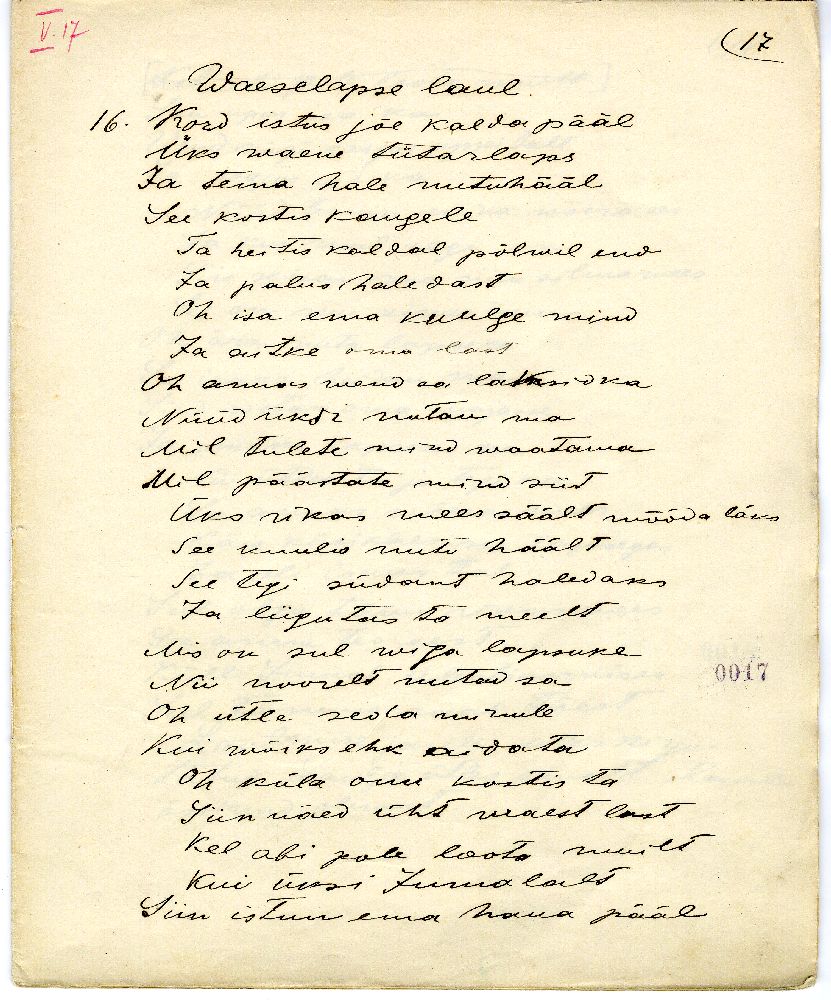 V. 17
17
Waeselapse laul.
16. Kord istus jõe kalda pääl
Üks waene tütarlaps
Ja tema hale nutuhääl
See kostis kaugele
Ta heitis kaldal põlwil end
Ja palus haledast
Oh isa ema kuulge mind
Ja aitke oma last
Oh armas wend sa läksid ka
Nüüd üksi nutan ma
Mil tulete mind waatama
Mil päästate mind siit
Üks rikas mees säält mööda läks
See kuulis nutu häält
See tegi südant haledaks
Ja liigutas ta meelt
Mis on sul wiga lapsuke
Nii noorelt nutad sa
Oh ütle seda minule
Kui wõiks ehk aidata
Oh küla onu kostis ta
Siin näed üht waest last
Kel abi pole loota muilt
Kui üksi Jumalalt
Siin istun ema haua pääl
0017